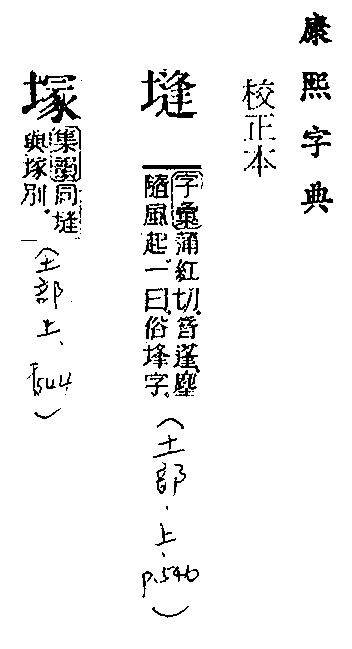 康熙字典
校正本
塳
字彙蒲紅切音蓬塵
隨風起一曰俗埄字
(土部.上.
p.546)
塚
集韻同塳
與塚別。
(土部上、
544)